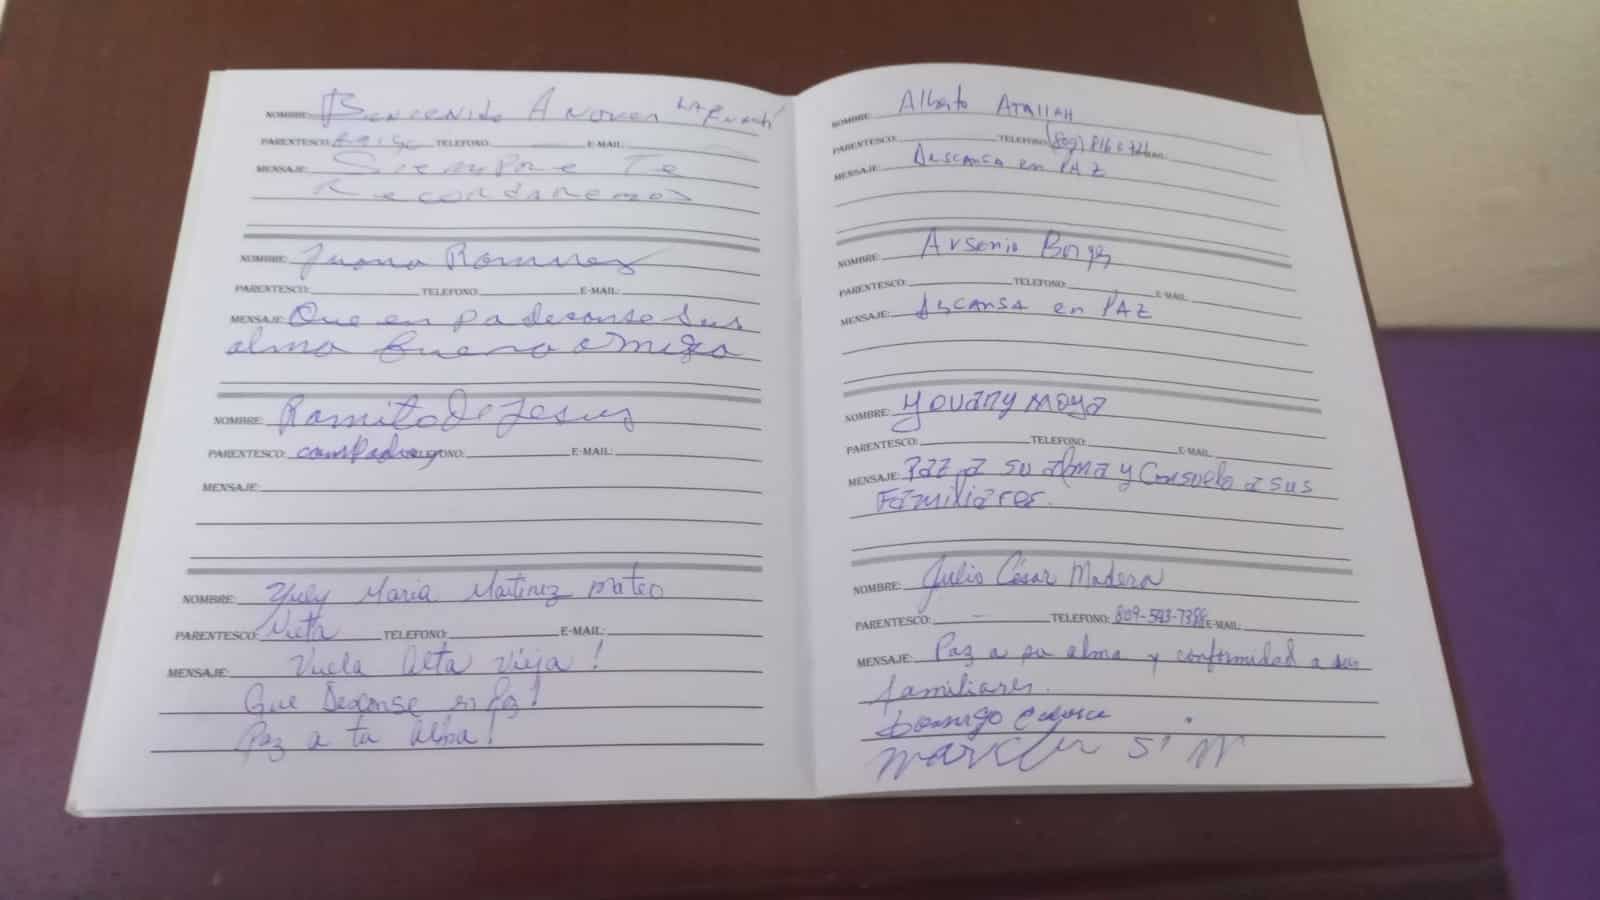 NOMBRE: Bienvenido
PARENTESCO: TELEFONO: E-MAIL:
MENSAJE: Siempre Te
Recordaremos
NOMBRE: Juana Ramirez
PARENTESCO: TELEFONO: E-MAIL:
MENSAJE: Que en pa deconse sus
alma buena amiga
NOMBRE: Ramito De Jesus
PARENTESCO: E-MAIL:
MENSAJE:
NOMBRE: Yuly Maria Martinez Mateo
PARENTESCO: Nieta TELEFONO: E-MAIL:
MENSAJE: Vuela alta vieja!
Que Descanse en Paz!
Paz a tu alma!
NOMBRE: Alberto ATALLAH
PARENTESCO: TELEFONO:
MENSAJE: Descansa en PAZ
NOMBRE: Arsenio
PARENTESCO: TELEFONO: E-MAIL:
MENSAJE: Descansa en PAZ
NOMBRE: Yovany Moya
PARENTESCO: TELEFONO: E-MAIL:
MENSAJE: Paz a su alma y Consuelo a sus
Familiares.
NOMBRE: Julio César Madera
PARENTESCO: TELEFONO: E-MAIL:
MENSAJE: Paz a su alma y conformidad a sus
familiares.